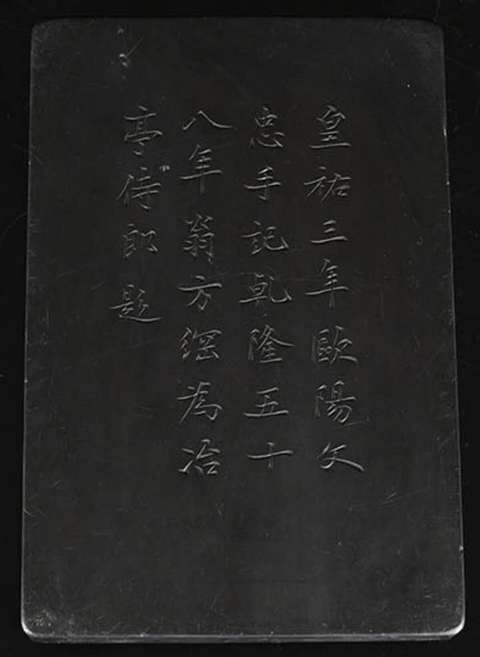 皇祐三年歐陽文
忠手記乾隆五十
八年翁方綱為冶
亭侍郎題